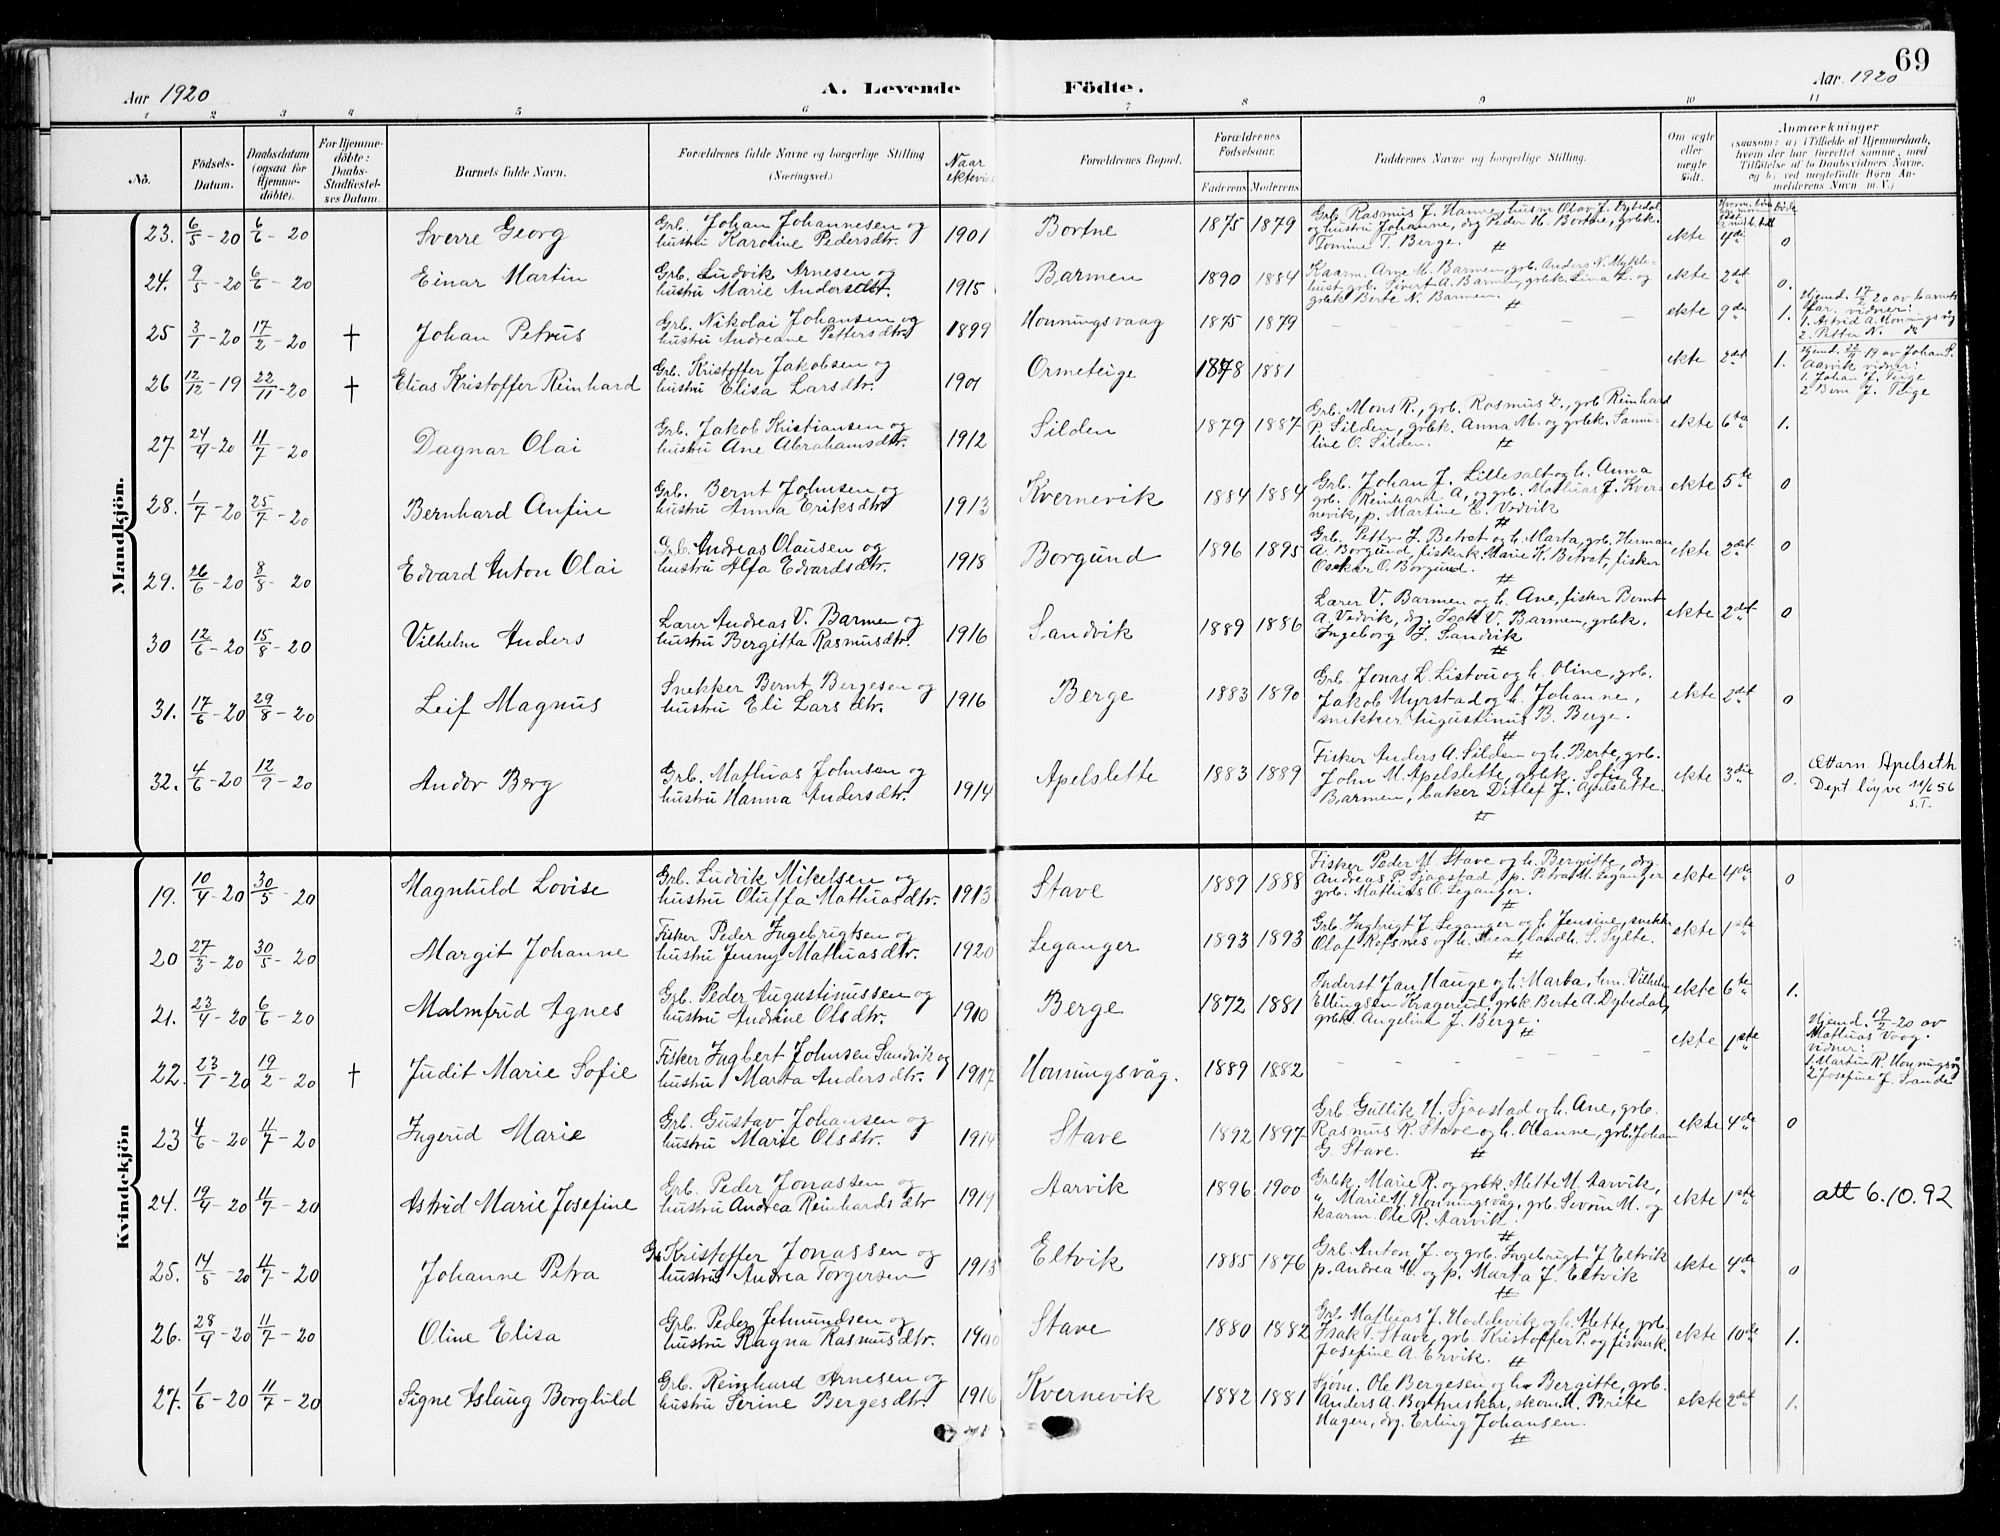 69
Aar 1920
A. Levende Födte.
Aar 1920
1 2 3 4 5 6 7 8 9 10 11
No.
Födsels-Datum.
Daabsdatum (ogsaa for Hjemmedöbte).
For Hjemmedöbte: Daabs-Stadfæstelses Datum.
Barnets fulde Navn.
Forældrenes fulde Navne og borgerlige Stilling (Næringsvei.)
Naar ektevied
Forældrenes Bopæl.
Forældrenes Födselsaar.
Faderens Moderens
Faddernes Navne og borgerlige Stilling.
Om ægte eller uægte födt.
Anmærkninger
(saasom: a) i Tilfælde af Hjemmedaab, hvem der har forrettet samme, med Tilföielse af to Daabsvidners Navne, og b) ved uægtefödte Börn Anmelderens Navn m. V.)
Mandkjön.
23. 6/5-20 6/6-20 Sverre Georg Grb. Johan Johannesen og hustru Karoline Pedersdtr. 1901 Bortne 1875 1879 Grb. Rasmus J. Hamre, husm. Olav J. Dybedal og hustru Johanne, drg Peder M. Bortne, grbk. Tomine T. Berge. # ekte 4de 0
24. 9/5-20 6/6-20 Einar Martin Grb. Ludvik Arnesen og hustru Marie Andersdtr. 1915 Barmen 1890 1884 Kaarm. Arne M. Barmen, grb. Anders N. Myklebust, grb. Sivert A. Barmen, grbk. Lina L. og grbk Berte N. Barmen. # ekte 2det 0.
25 3/1-20 17/2-20 † Johan Petrus Grb. Nikolai Johansen og hustru Andreane Pettersdtr. 1899 Honningsvaag 1875 1879 – – – – – – ekte 9de 1. Hjemd. 17/2 20 av barnets far. vidner: 1. Astrid A. Honningsvåg 2. Petter N. do
26 12/12-19 22/11-20 † Elias Kristoffer Reinhard Grb. Kristoffer Jakobsen og hustru Elisa Larsdtr. 1901 Ormeteige 1878 1881 – – – – – – ekte 2det 1. Hjemd. 19 av Johan S. Aarvik vidner: 1. Johan J. Teige 2 Bern J. Teige
27. 24/4-20 11/7-20 Dagnar Olai Grb. Jakob Kristiansen og hustru Ane Abrahamsdtr. 1912 Silden 1879 1887 Grb. Mons R., grb. Rasmus L., grb Reinhard P. Silden, grbk. Anna M. og grbk. Samuline O. Silden. # ekte 6te 1.
28. 1/7-20 25/7-20 Bernhard Anfin Grb. Bernt Johnsen og hustru Anna Eriksdtr 1913 Kvernevik 1884 1884 Grb. Johan J. Lillesalt og h. Anna grb. Reinhard A. og grb. Mathias J. Kvernevik, p. Martine E. Vedvik # ekte 5te 0
29. 26/6-20 8/8-20 Edvard Anton Olai Grb. Andreas Olausen og hustru Alfa Edvardsdtr. 1918 Borgund 1896 1895 Grb. Petter J. Betvet og h. Marta, grb. Herman A. Borgund, fiskerk. Marie K. Betvet, fisker Oskar O. Borgund. # ekte 2det 0
30 12/6-20 15/8-20 Vilhelm Anders Lærer Andreas V. Barmen og hustru Bergitta Rasmusdtr. 1916 Sandvik 1889 1886 Lærer V. Barmen og h. Ane, fisker Bernt A. Vedvik, drg. Isak V. Barmen, grbk. Ingeborg J. Sandvik # ekte 2det 0
31. 17/6-20 29/8-20 Leif Magnus Snekker Bernt Bergesen og hustru Eli Larsdtr. 1916 Berge 1883 1890 Grb. Jonas L. Listou og h. Oline, grb. Jakob Myrstad og h. Johanne, snikker Augustinus B. Berge. # ekte 2det 0
32. 4/6-20 12/9-20 Andor Berg Grb. Mathias Johnsen og hustru Hanna Andersdtr. 1914 Apelslette 1883 1889 Fisker Anders A. Silden og h. Berte, grb. John M. Apelslette, grbk. Sofie A. Barmen, baker Ditlef J. Apelslette. # ekte 3die 0. Ættarn. Apelseth Dept. løyve 11/6 56 s.T.
Kvindekjön
19. 10/4-20 30/5-20 Magnhild Lovise Grb. Ludvik Mikelsen og hustru Oluffa Mathiasdtr. 1913 Stave 1889 1888 Fisker Peder M. Stave og h. Bergitte, drg. Andreas P. Sjaastad, p. Petra M. Leganger grb. Mathias O. Leganger. # ekte 4de 0
20 27/3-20 30/5-20 Margit Johanne Fisker Peder Ingebrigtsen og hustru Jenny Mathiasdtr. 1920 Leganger 1893 1893 Grb. Ingbrigt J. Leganger og h. Jensine, snekk. Olaf Refsnes og h. Thea, landh. S. Sylte. # ekte 1ste
21. 23/4-20 6/6-20 Malmfrid Agnes Grb. Peder Augustinussen og hustru Andrine Olsdtr. 1910 Berge 1872 1881 Inderst Jan Hauge og h. Marta, Vilhelm Ellingsen Kragerud, grbk Berte A. Dybedal, grbk. Angelina J. Berge. # ekte 6te 1.
22. 23/1-20 19/2-20 † Judit Marie Sofie Fisker Ingbert Johnsen Sandvik og hustru Marta Andersdtr. 1917 Honningsvåg. 1889 1882 – – – – – – ekte 1ste Hjemd. 19/2-20 av Mathias Vaag. vidner: 1 Martin R. Honningsvåg 2 Josefine J. Sande
23 4/6-20 11/7-20 Ingerid Marie Grb. Gustav Johansen og hustru Marie Olsdtr. 1914 Stave 1892 1897 Grb. Gullik M. Sjaastad og h. Ane, grb. Rasmus R. Stave og h. Olianne, grb. Johan G. Stave. # ekte 4de 0
24. 19/4-20 11/7-20 Astrid Marie Josefine Grb. Peder Jonassen og hustru Andrea Reinhardsdtr 1919 Aarvik 1896 1900 Grbk. Marie R. og grbk. Mette M. Aarvik, " Marie M. Honningsvåg, grb. Severin M. og kaarm. Ole R. Aarvik. # ekte 1ste att 6.10.92
25. 14/5-20 11/7-20 Johanne Petra Grb Kristoffer Jonassen og hustru Andrea Torgersen 1913 Eltvik 1885 1876 Grb. Anton J. og grb. Ingebrigt J Eltvik p. Andrea M. og p. Marta J. Eltvik # ekte 4de 0
26. 28/4-20 11/7-20 Oline Elisa Grb. Peder Jetmundsen og hustru Ragna Rasmusdtr. 1900 Stave 1880 1882 Grb. Mathias J. Hoddevik og h. Mette, grb. Isak T. Stave, grb. Kristoffer P. og fiskerk. Josefine A. Ervik. # ekte 10de 1.
27. 1/6-20 11/7-20 Signe Aslaug Borghild Grb. Reinhard Arnesen og hustru Serine Bergesdtr 1916 Kvernevik 1882 1881 Sjøm. Ole Bergesen og h. Bergitte, grb. Anders A. Bortneskar, skom. M. Brite Hagen, drg. Erling Johansen. # ekte 2det 1.